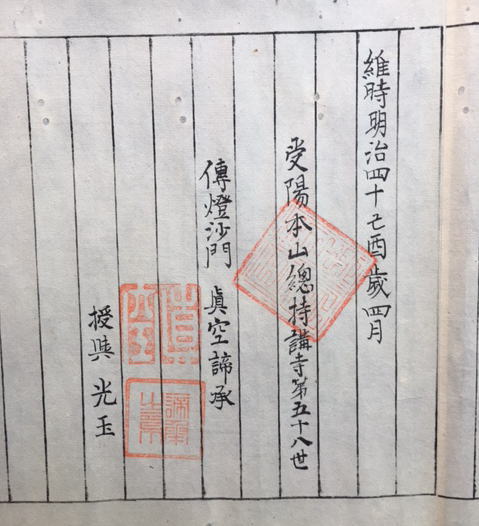 維時明治四十己酉歲四月
受陽本山總持講寺第五十八世
傳燈沙門 眞空諦承
諦承之章
授與 光玉